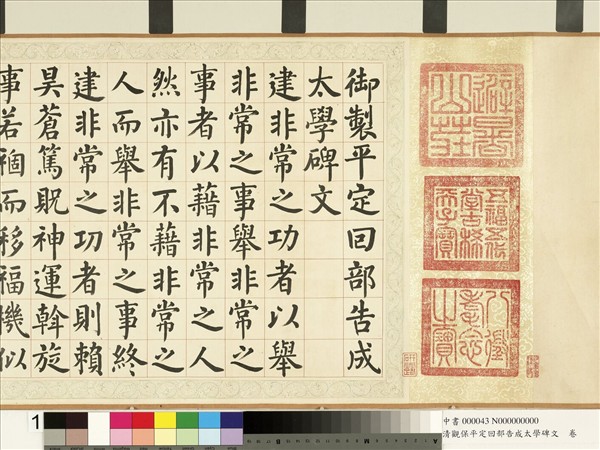 避暑山莊
五福五代堂古稀天子寶
八徵耄念之寶
御製平定回部告成
太學碑文
建非常之功者以舉
非常之事舉非常之
事者以藉非常之人
然亦有不藉非常之
人而舉非常之事終
建非常之功者則賴
昊蒼篤貺神運斡旋
事若禍而移福機似
1
中書 000043 N000000000
清觀保平定回部告成太學碑文 卷